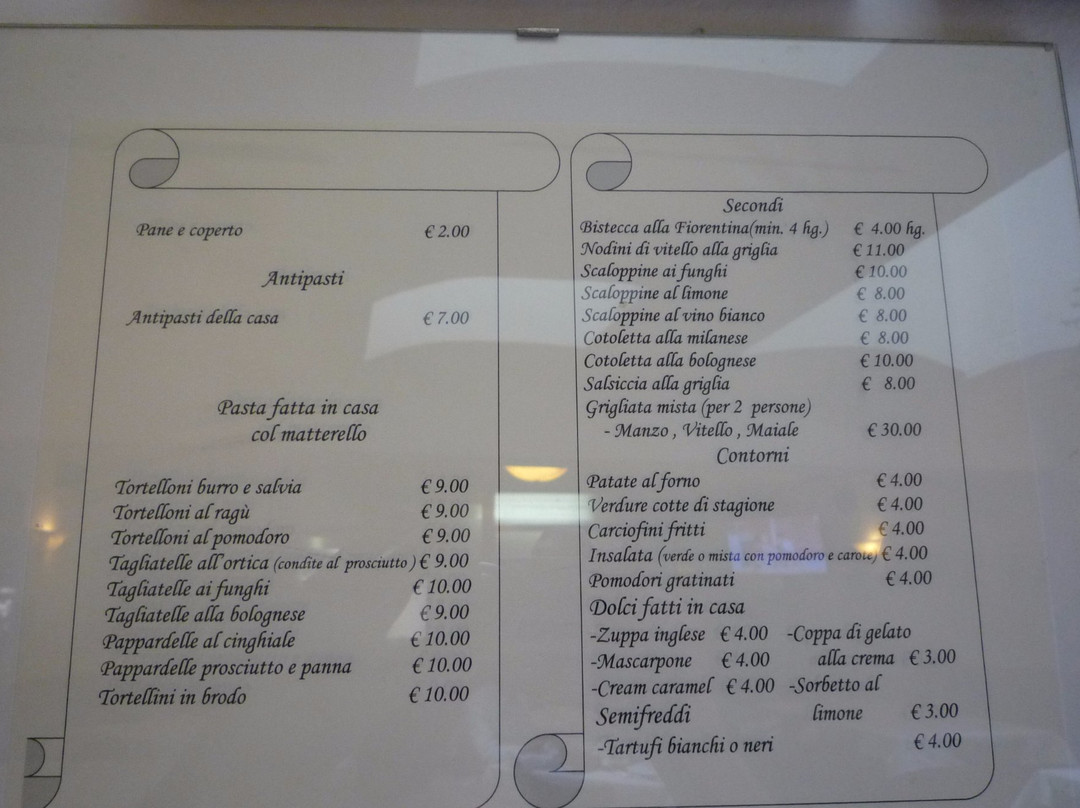 Pane e coperto € 2.00
Antipasti
Antipasti della casa € 7.00
Pasta fatta in casa
col matterello
Tortelloni burro e salvia € 9.00
Tortelloni al ragù € 9.00
Tortelloni al pomodoro € 9.00
Tagliatelle all'ortica (condite al prosciutto) € 9.00
Tagliatelle ai funghi € 10.00
Tagliatelle alla bolognese € 9.00
Pappardelle al cinghiale € 10.00
Pappardelle prosciutto e panna € 10.00
Tortellini in brodo € 10.00
Secondi
Bistecca alla Fiorentina(min. 4 hg.) € 4.00 hg.
Nodini di vitello alla griglia € 11.00
Scaloppine ai funghi € 10.00
Scaloppine al limone € 8.00
Scaloppine al vino bianco € 8.00
Cotoletta alla milanese € 8.00
Cotoletta alla bolognese € 10.00
Salsiccia alla griglia € 8.00
Grigliata mista (per 2 persone)
- Manzo , Vitello , Maiale € 30.00
Contorni
Patate al forno € 4.00
Verdure cotte di stagione € 4.00
Carciofini fritti € 4.00
Insalata (verde o mista con pomodoro e carote) € 4.00
Pomodori gratinati € 4.00
Dolci fatti in casa
-Zuppa inglese € 4.00 -Coppa di gelato
-Mascarpone € 4.00 alla crema € 3.00
-Cream caramel € 4.00 -Sorbetto al
Semifreddi limone € 3.00
-Tartufi bianchi o neri € 4.00